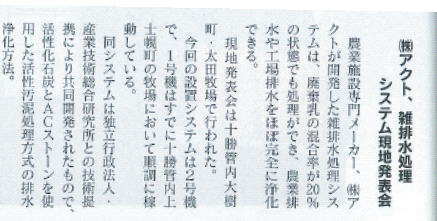 ㈱アクト、雑排水処理
システム現地発表会
農業施設専門メーカー、㈱ア
クトが開発した雑排水処理シス
テムは、廃棄乳の混合率が20%
の状態でも処理ができ、農業排
水や工場排水をほぼ完全に浄化
できる。
現地発表会は十勝管内大樹
町・太田牧場で行われた。
今回の設置システムは2号機
で、1号機はすでに十勝管内上
士幌町の牧場において順調に稼
動している。
同システムは独立行政法人・
産業技術総合研究所との技術提
携により共同開発されたもので、
活性化石炭とACストーンを使
用した活性汚泥処理方式の排水
浄化方法。